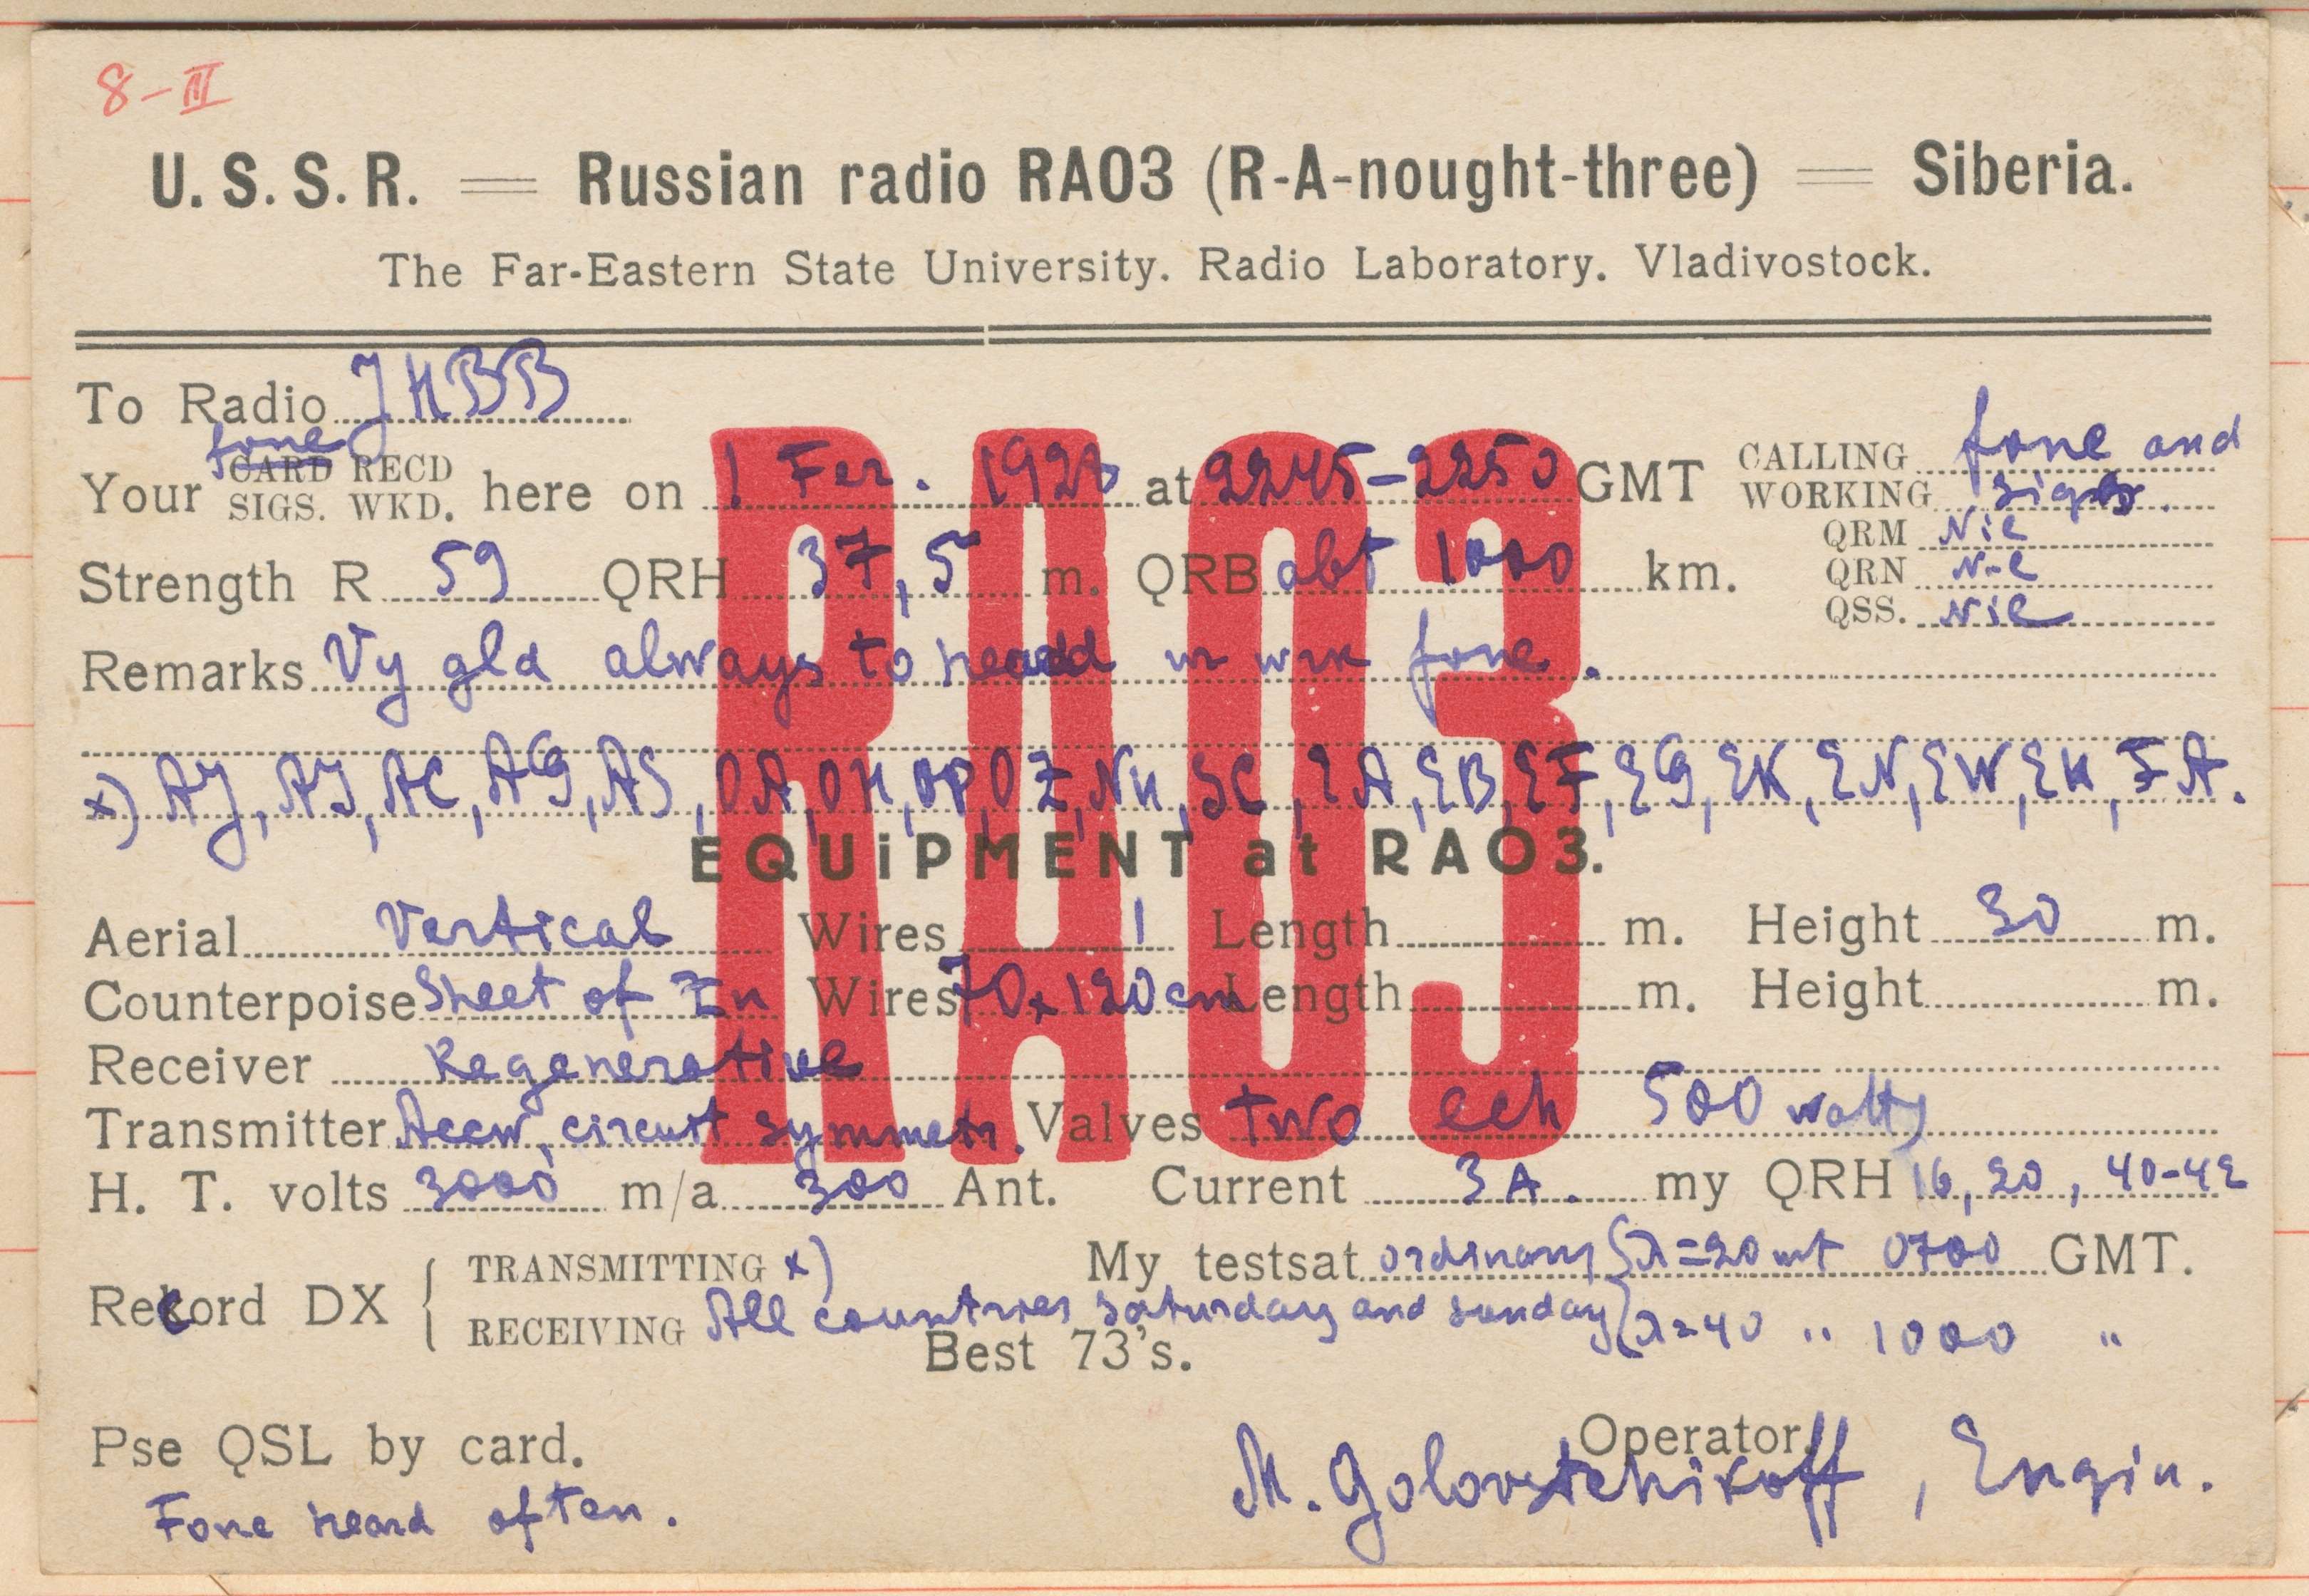 8-III
U. S. S. R. = Russian radio RA03 (R-A-nought-three) = Siberia.
The Far-Eastern State University. Radio Laboratory. Vladivostock.
To Radio JHBB
fone
Your CARD RECD SIGS. WKD. here on 1 Fer. 1928 at 2245-2250 GMT CALLING WORKING fone and sigs.
Strength R 59 QRH 37,5 m. QRB abt 1000 km.
QRM Nil
QRN Nil
QSS. Nil
Remarks Vy gld always to heard ur wrk fone.
x) AJ, AI, AC, AG, AS, OA, OH, OP, OZ, NU, SC, EA, EB, EF, EG, EK, EN, EW, EU, FA.
RA03
EQUiPMENT at RAO3.
Aerial Vertical Wires 1 Length m. Height 30 m.
Counterpoise Sheet of Zn Wires 70x120 cm Length m. Height m.
Receiver Regenerative
Transmitter Accw, circuit symmetr. Valves two ech 500 watts
H. T. volts 3000 m/a 300 Ant. Current 3A. my QRH 16, 20, 40-42
Record DX { TRANSMITTING x) My testsat ordinary { λ=20 mt 0700 GMT.
RECEIVING All countries saturday and sunday { λ=40 " 1000 "
Best 73's.
Pse QSL by card. Operator,
Fone heard often. M. Golovstchikoff, Engin.